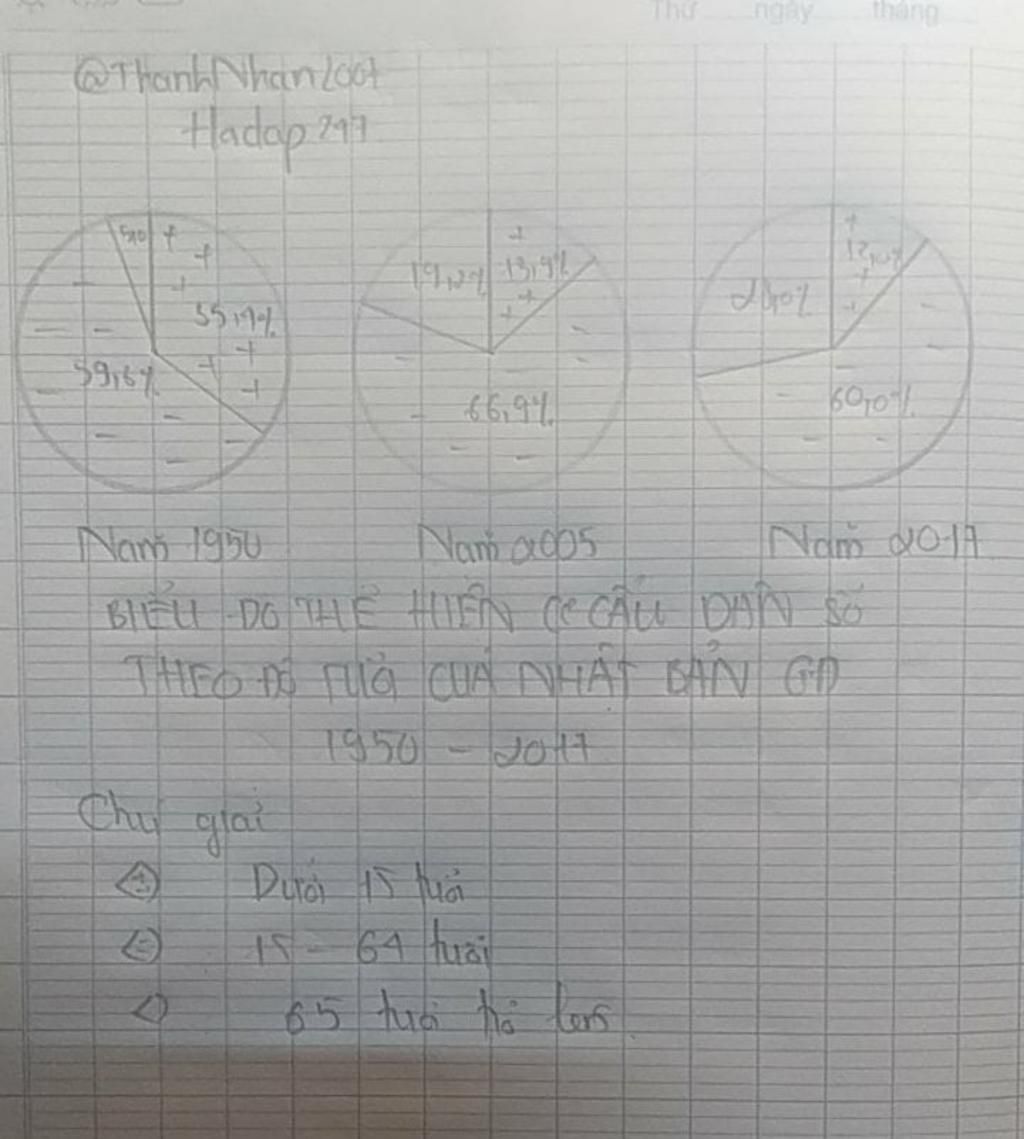 Thứ ngày tháng
@ThanhNhan2001
Hadap247
5,0 35,4% 59,6%
19,2% 13,9% 66,9%
12,0% 60,0%
Năm 1950 Năm 2005 Năm 2017
BIỂU ĐỒ THỂ HIỆN CƠ CẤU DÂN SỐ
THEO ĐỘ TUỔI CỦA NHẬT BẢN GĐ
1950 - 2017
Chú giải
+ Dưới 15 tuổi
- 15 - 64 tuổi
65 tuổi trở lên